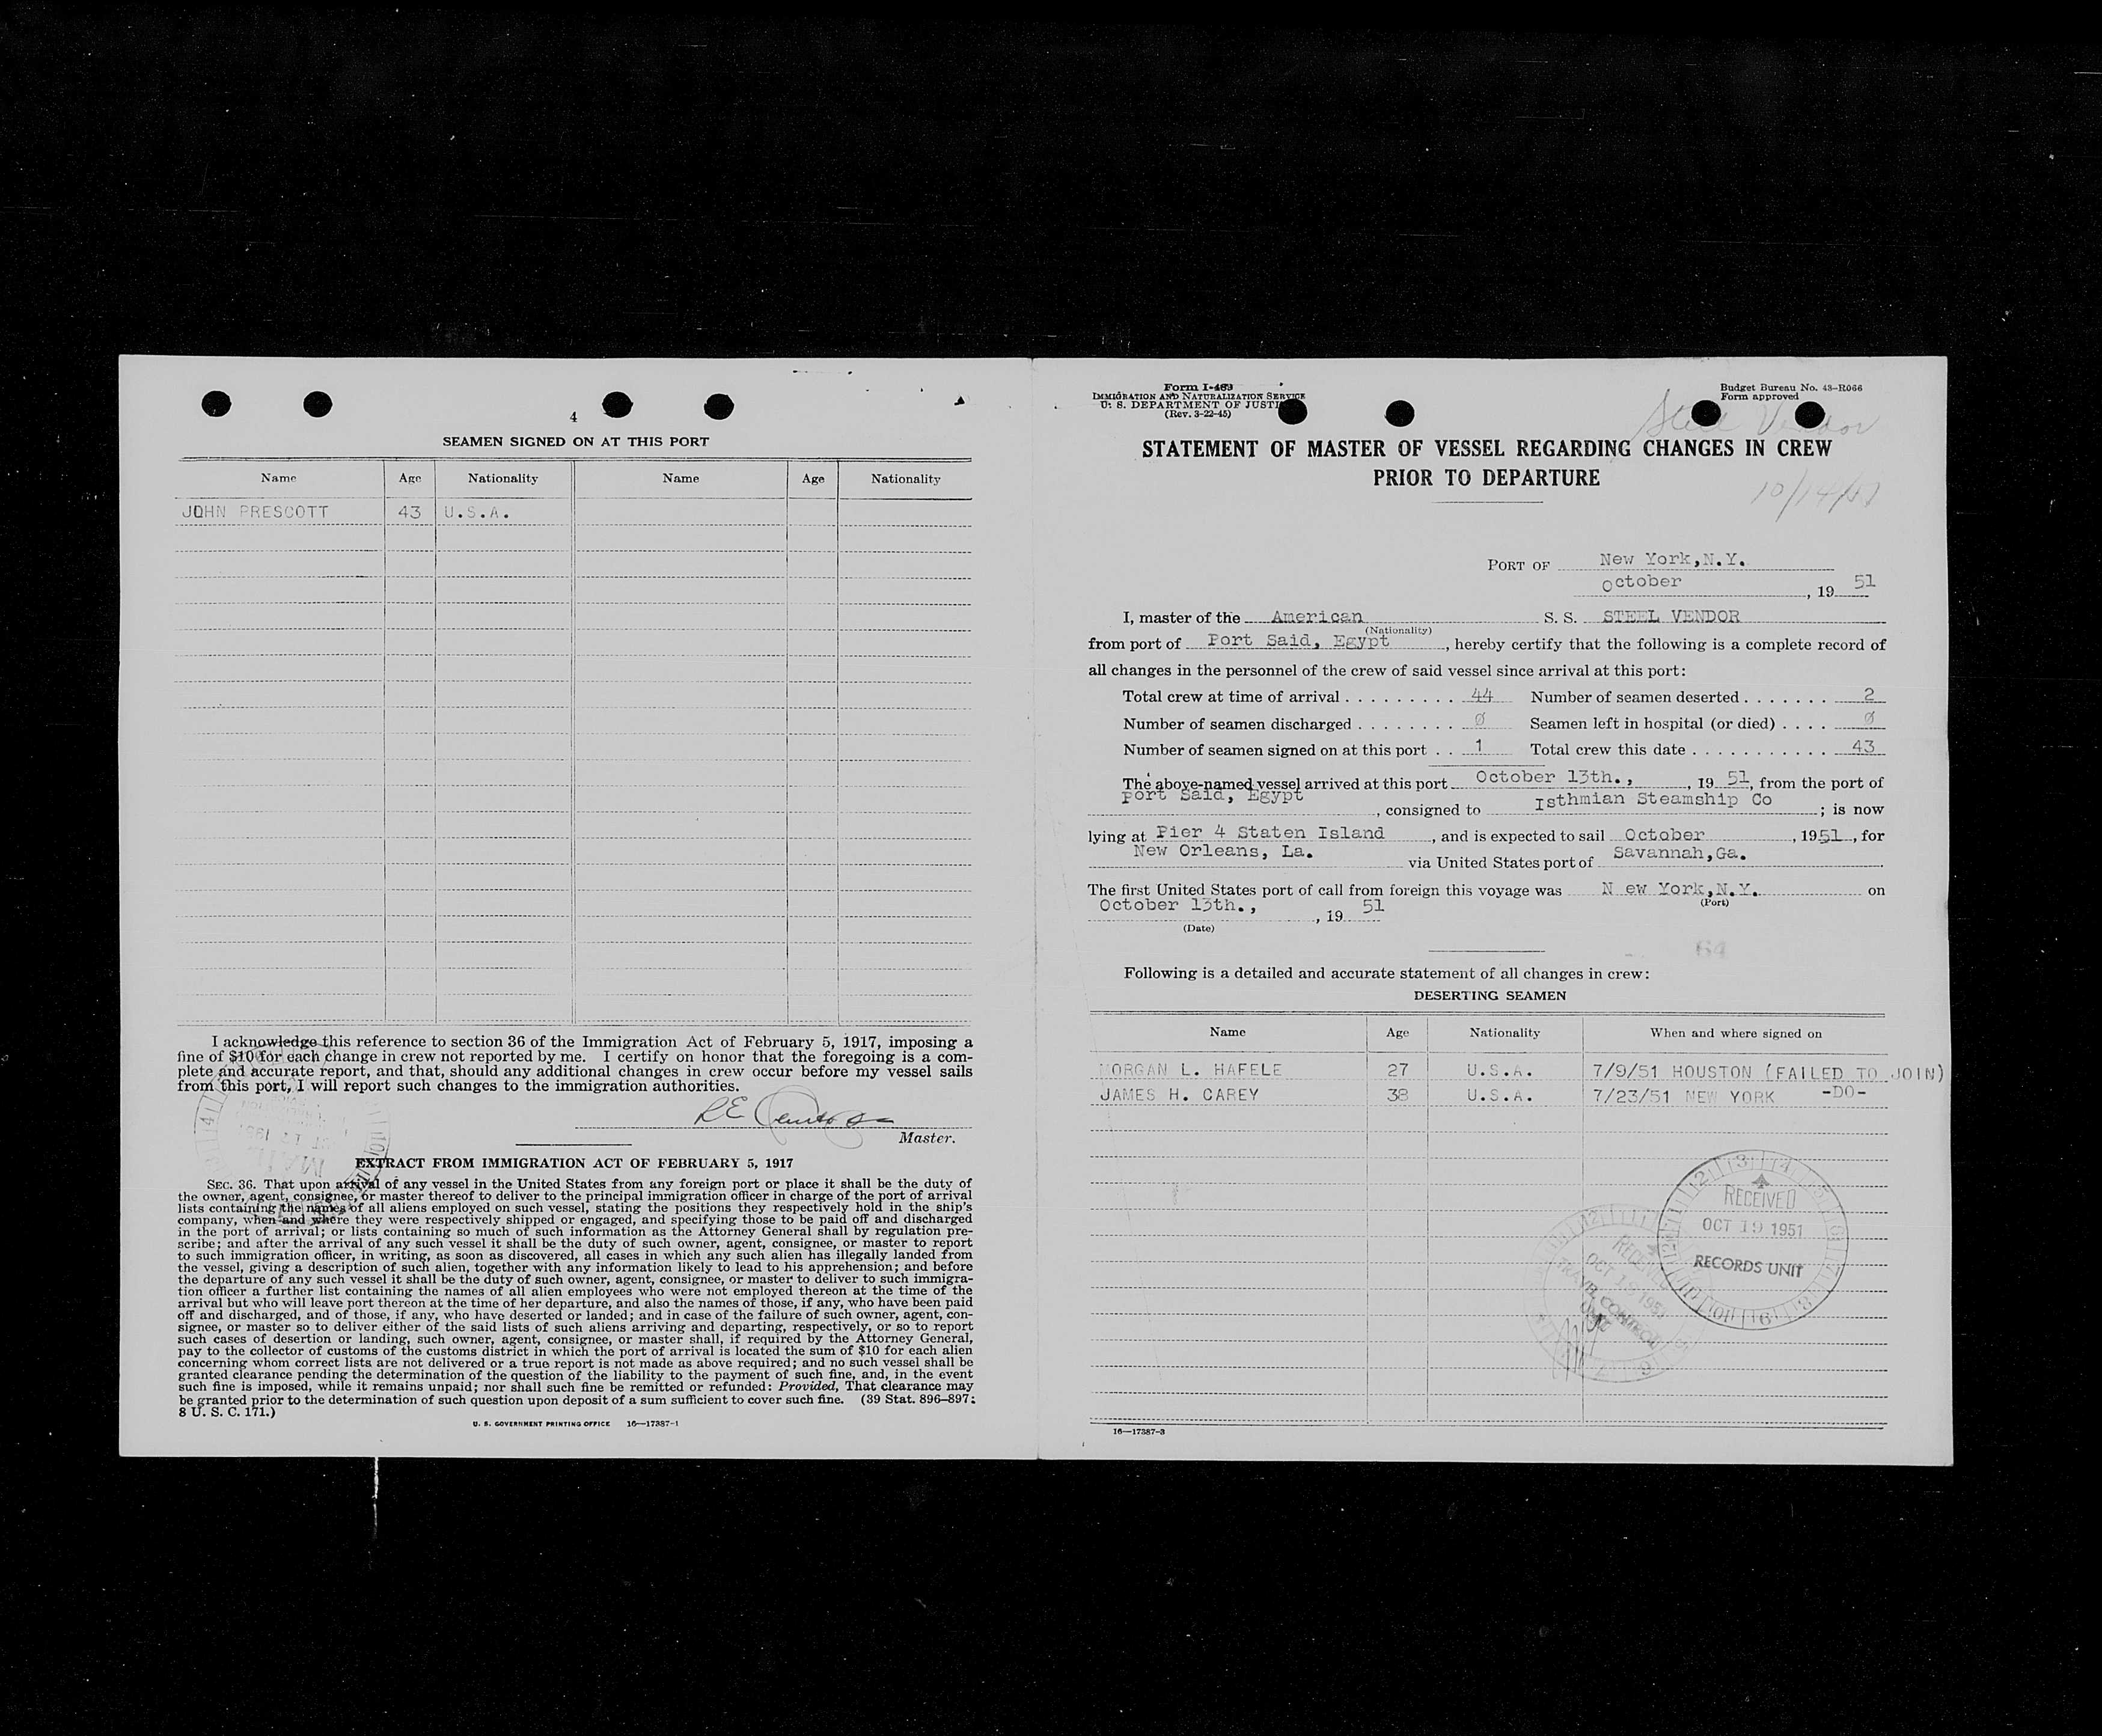 4
SEAMEN SIGNED ON AT THIS PORT
Name Age Nationality Name Age Nationality
JOHN PRESCOTT 43 U.S.A.
I acknowledge this reference to section 36 of the Immigration Act of February 5, 1917, imposing a
fine of $10 for each change in crew not reported by me. I certify on honor that the foregoing is a com-
plete and accurate report, and that, should any additional changes in crew occur before my vessel sails
from this port, I will report such changes to the immigration authorities.
Master.
EXTRACT FROM IMMIGRATION ACT OF FEBRUARY 5, 1917
SEC. 36. That upon arrival of any vessel in the United States from any foreign port or place it shall be the duty of
the owner, agent, consignee, or master thereof to deliver to the principal immigration officer in charge of the port of arrival
lists containing the names of all aliens employed on such vessel, stating the positions they respectively hold in the ship's
company, when and where they were respectively shipped or engaged, and specifying those to be paid off and discharged
in the port of arrival; or lists containing so much of such information as the Attorney General shall by regulation pre-
scribe; and after the arrival of any such vessel it shall be the duty of such owner, agent, consignee, or master to report
to such immigration officer, in writing, as soon as discovered, all cases in which any such alien has illegally landed from
the vessel, giving a description of such alien, together with any information likely to lead to his apprehension; and before
the departure of any such vessel it shall be the duty of such owner, agent, consignee, or master to deliver to such immigra-
tion officer a further list containing the names of all alien employees who were not employed thereon at the time of the
arrival but who will leave port thereon at the time of her departure, and also the names of those, if any, who have been paid
off and discharged, and of those, if any, who have deserted or landed; and in case of the failure of such owner, agent, con-
signee, or master so to deliver either of the said lists of such aliens arriving and departing, respectively, or so to report
such cases of desertion or landing, such owner, agent, consignee, or master shall, if required by the Attorney General,
pay to the collector of customs of the customs district in which the port of arrival is located the sum of $10 for each alien
concerning whom correct lists are not delivered or a true report is not made as above required; and no such vessel shall be
granted clearance pending the determination of the question of the liability to the payment of such fine, and, in the event
such fine is imposed, while it remains unpaid; nor shall such fine be remitted or refunded: Provided, That clearance may
be granted prior to the determination of such question upon deposit of a sum sufficient to cover such fine. (39 Stat. 896-897;
8 U. S. C. 171.)
U. S. GOVERNMENT PRINTING OFFICE 16—17387-1
Form I-489
IMMIGRATION AND NATURALIZATION SERVICE
U. S. DEPARTMENT OF JUSTI
(Rev. 3-22-45)
Budget Bureau No. 43-R066
Form approved
Steel Vendor
STATEMENT OF MASTER OF VESSEL REGARDING CHANGES IN CREW
PRIOR TO DEPARTURE
10/14/51
PORT OF New York,N.Y.
October , 19 51
I, master of the American S. S. STEEL VENDOR
(Nationality)
from port of Port Said, Egypt , hereby certify that the following is a complete record of
all changes in the personnel of the crew of said vessel since arrival at this port:
Total crew at time of arrival . . . . . . . . . 44 Number of seamen deserted . . . . . . . 2
Number of seamen discharged . . . . . . . . Ø Seamen left in hospital (or died) . . . . Ø
Number of seamen signed on at this port . . 1 Total crew this date . . . . . . . . . . . 43
The above-named vessel arrived at this port October 13th., , 19 51, from the port of
Port Said, Egypt , consigned to Isthmian Steamship Co ; is now
lying at Pier 4 Staten Island , and is expected to sail October , 1951 , for
New Orleans, La. via United States port of Savannah,Ga.
The first United States port of call from foreign this voyage was N ew York,N.Y. on
(Port)
October 13th., , 19 51
(Date)
64
Following is a detailed and accurate statement of all changes in crew:
DESERTING SEAMEN
Name Age Nationality When and where signed on
MORGAN L. HAFELE 27 U.S.A. 7/9/51 HOUSTON (FAILED TO JOIN)
JAMES H. CAREY 38 U.S.A. 7/23/51 NEW YORK -DO-
RECEIVED
OCT 19 1951
RECORDS UNIT
RECEIVED
OCT 19 1951
TRAVEL CONTROL
UNIT
16—17387-3